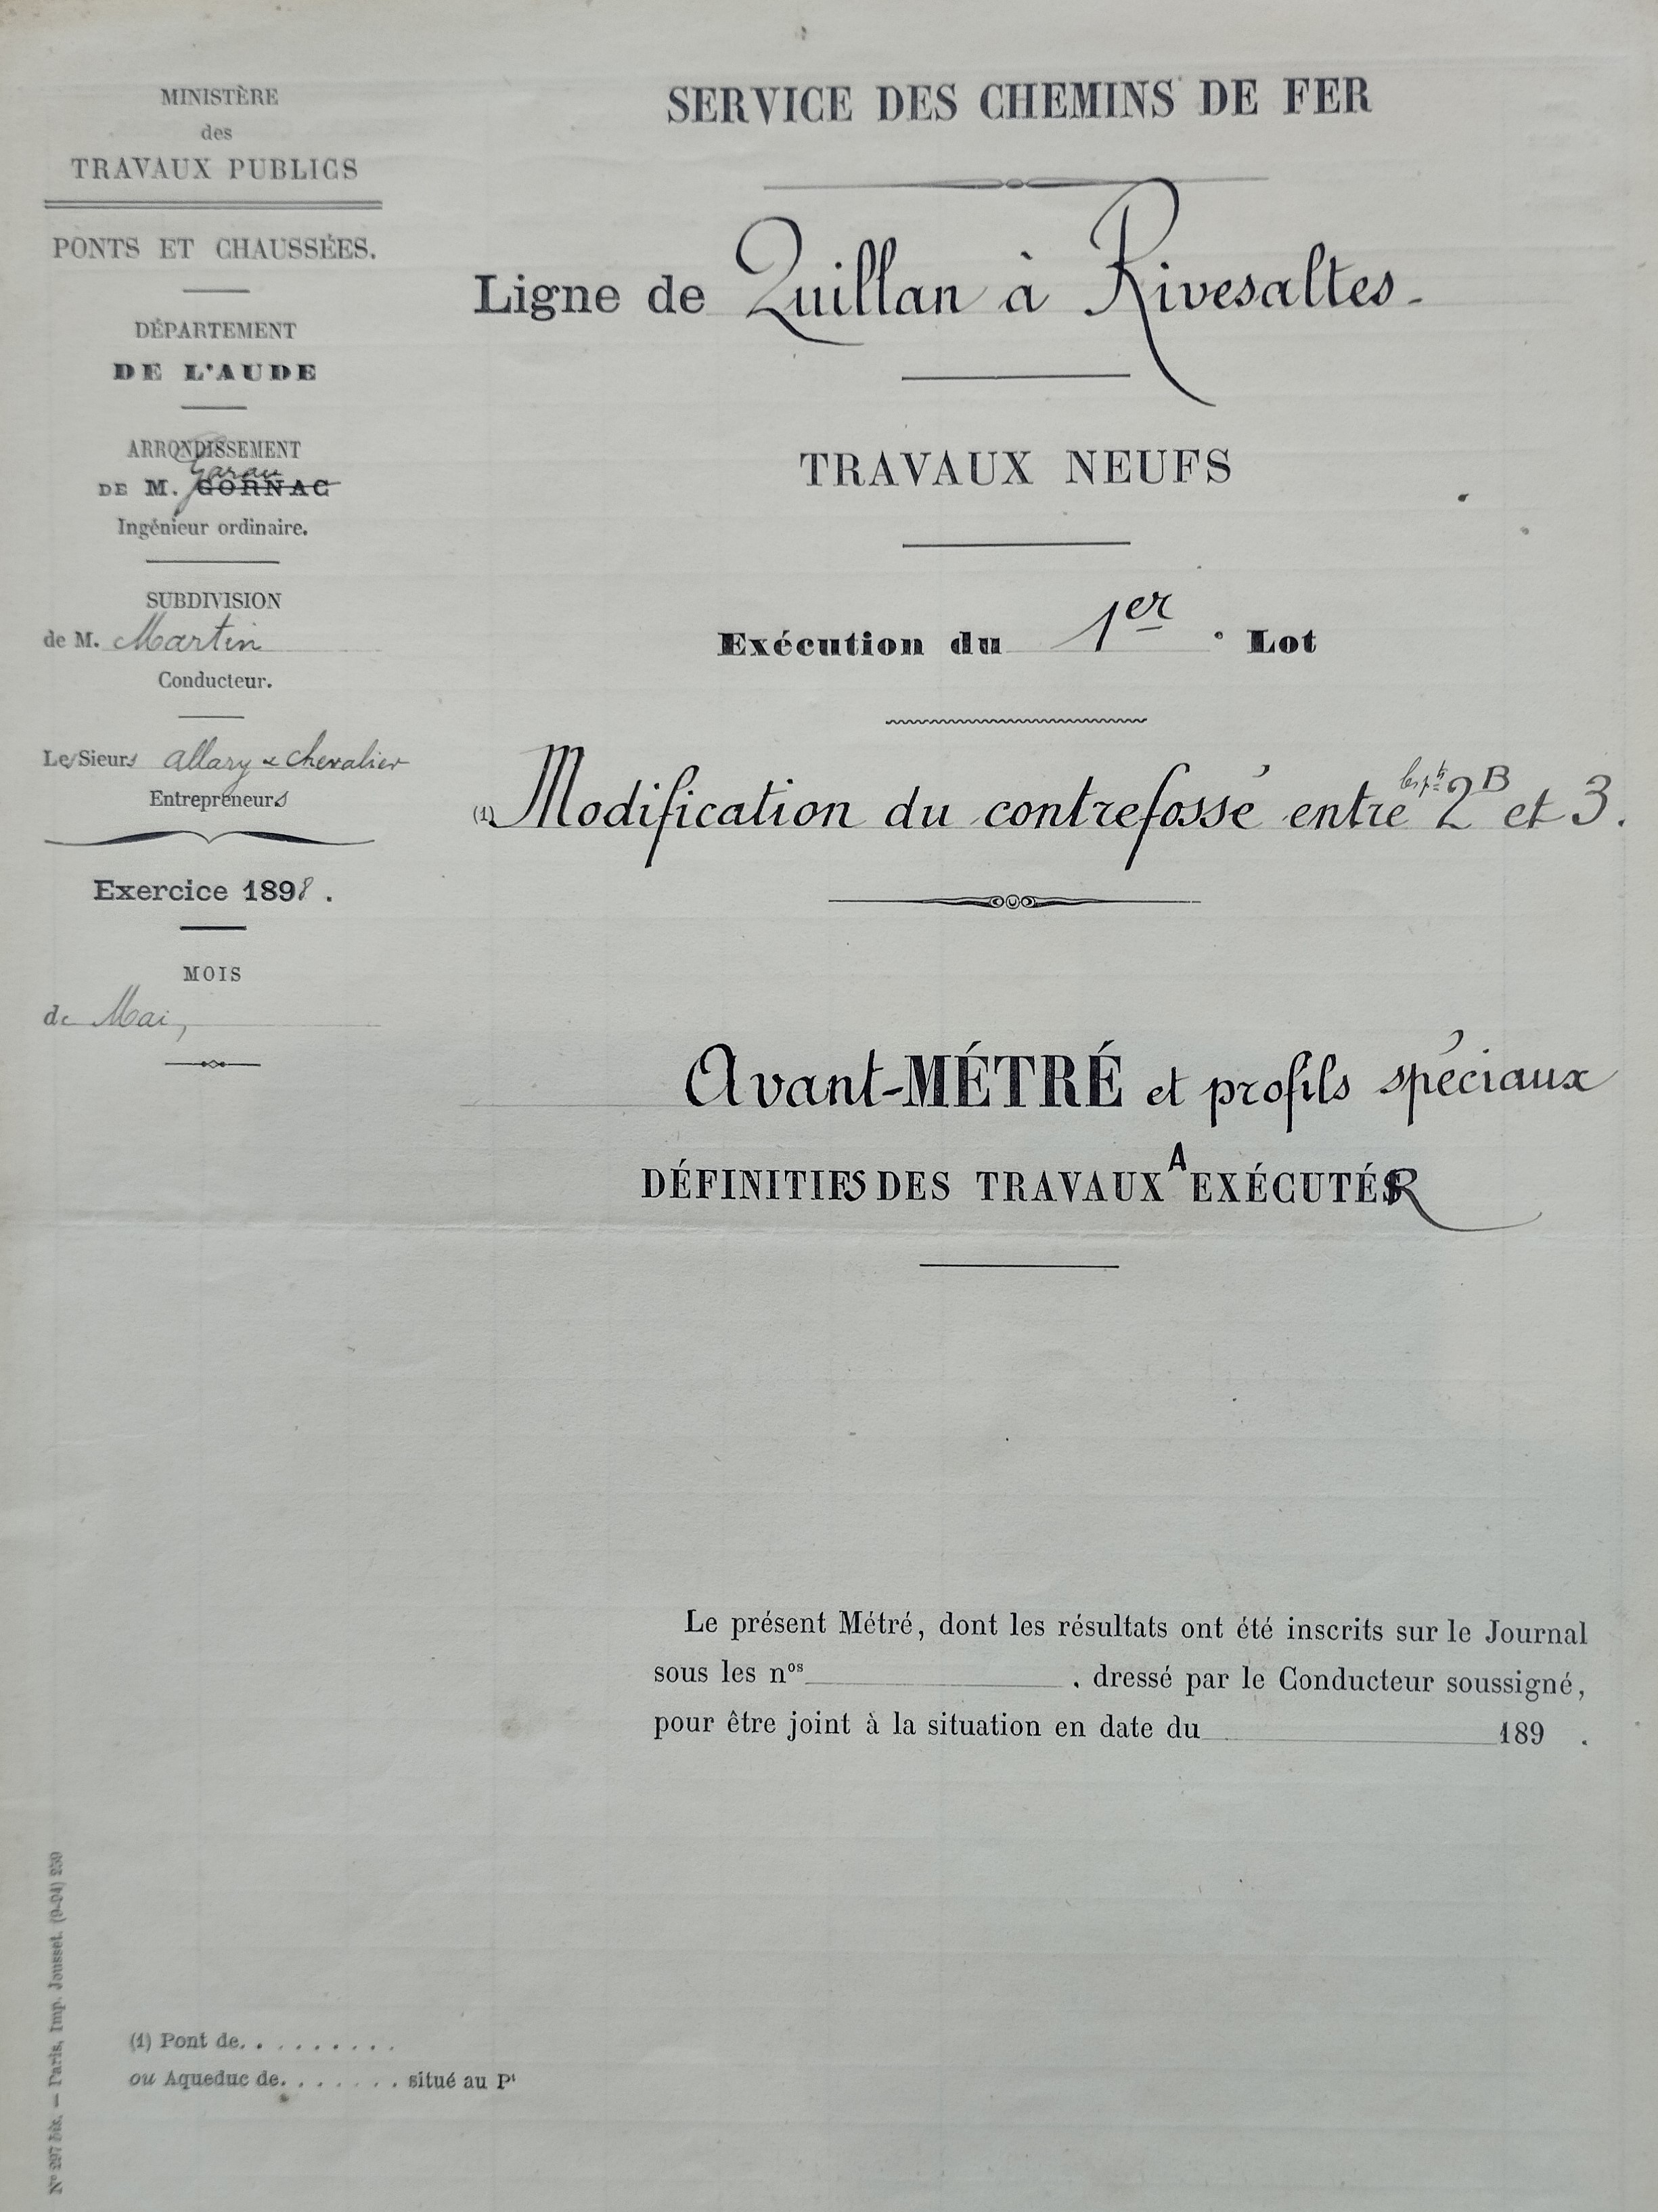 MINISTÈRE
des
TRAVAUX PUBLICS
PONTS ET CHAUSSÉES.
DÉPARTEMENT
DE L'AUDE
ARRONDISSEMENT
Garau
DE M. GORNAC
Ingénieur ordinaire.
SUBDIVISION
de M. Martin
Conducteur.
Les Sieurs Allary & Chevalier
Entrepreneurs
Exercice 1898.
MOIS
de Mai,
SERVICE DES CHEMINS DE FER
Ligne de Quillan à Rivesaltes.
TRAVAUX NEUFS
Exécution du 1er Lot
(1) Modification du contrefossé entre les pts 2B et 3.
Avant-MÉTRÉ et profils spéciaux
DÉFINITIFS DES TRAVAUX A EXÉCUTER
Le présent Métré, dont les résultats ont été inscrits sur le Journal
sous les nos , dressé par le Conducteur soussigné,
pour être joint à la situation en date du 189 .
(1) Pont de. . . . . . . . .
ou Aqueduc de. . . . . . . situé au Pt
No 297 bis. — Paris, Imp. Jousset. (9-94) 230